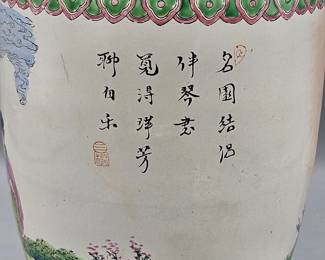 名園結侶
伴琴書
覓得芳
聊自乐